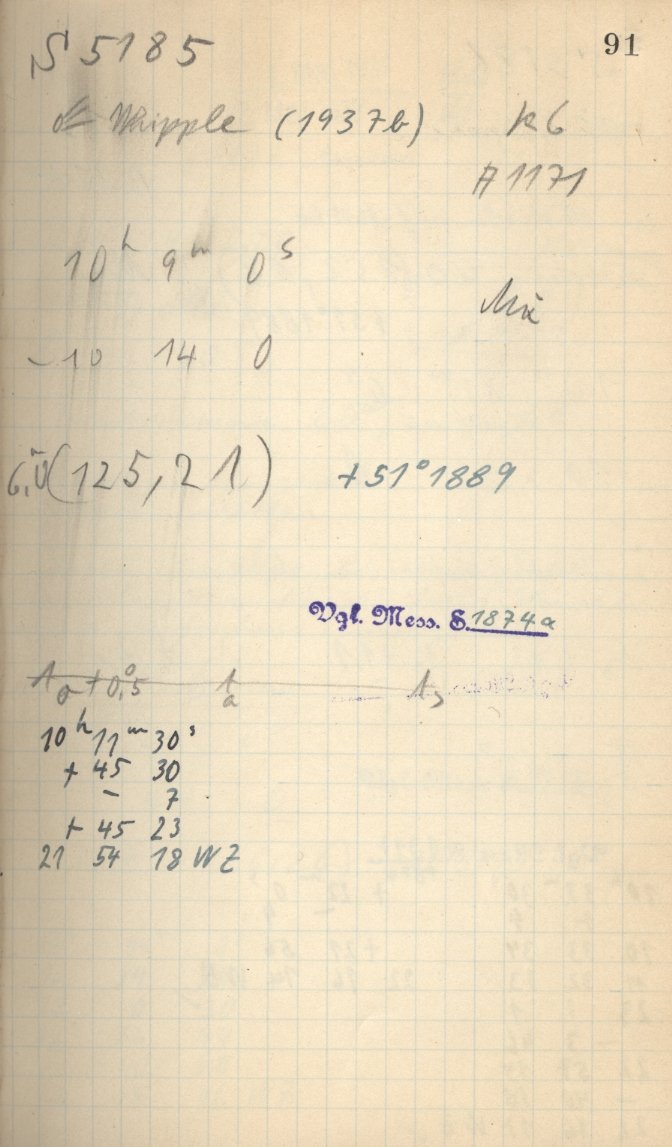 91
S 5185
☄ Whipple (1937b) k6
A 1171
10ʰ 9ᵐ 0ˢ
-10 14 0
(125,21) +51°1889
Vgl. Mess. S. 1874a
10ʰ 11ᵐ 30ˢ
+ 45 30
- 7
+ 45 23
21 54 18 WZ